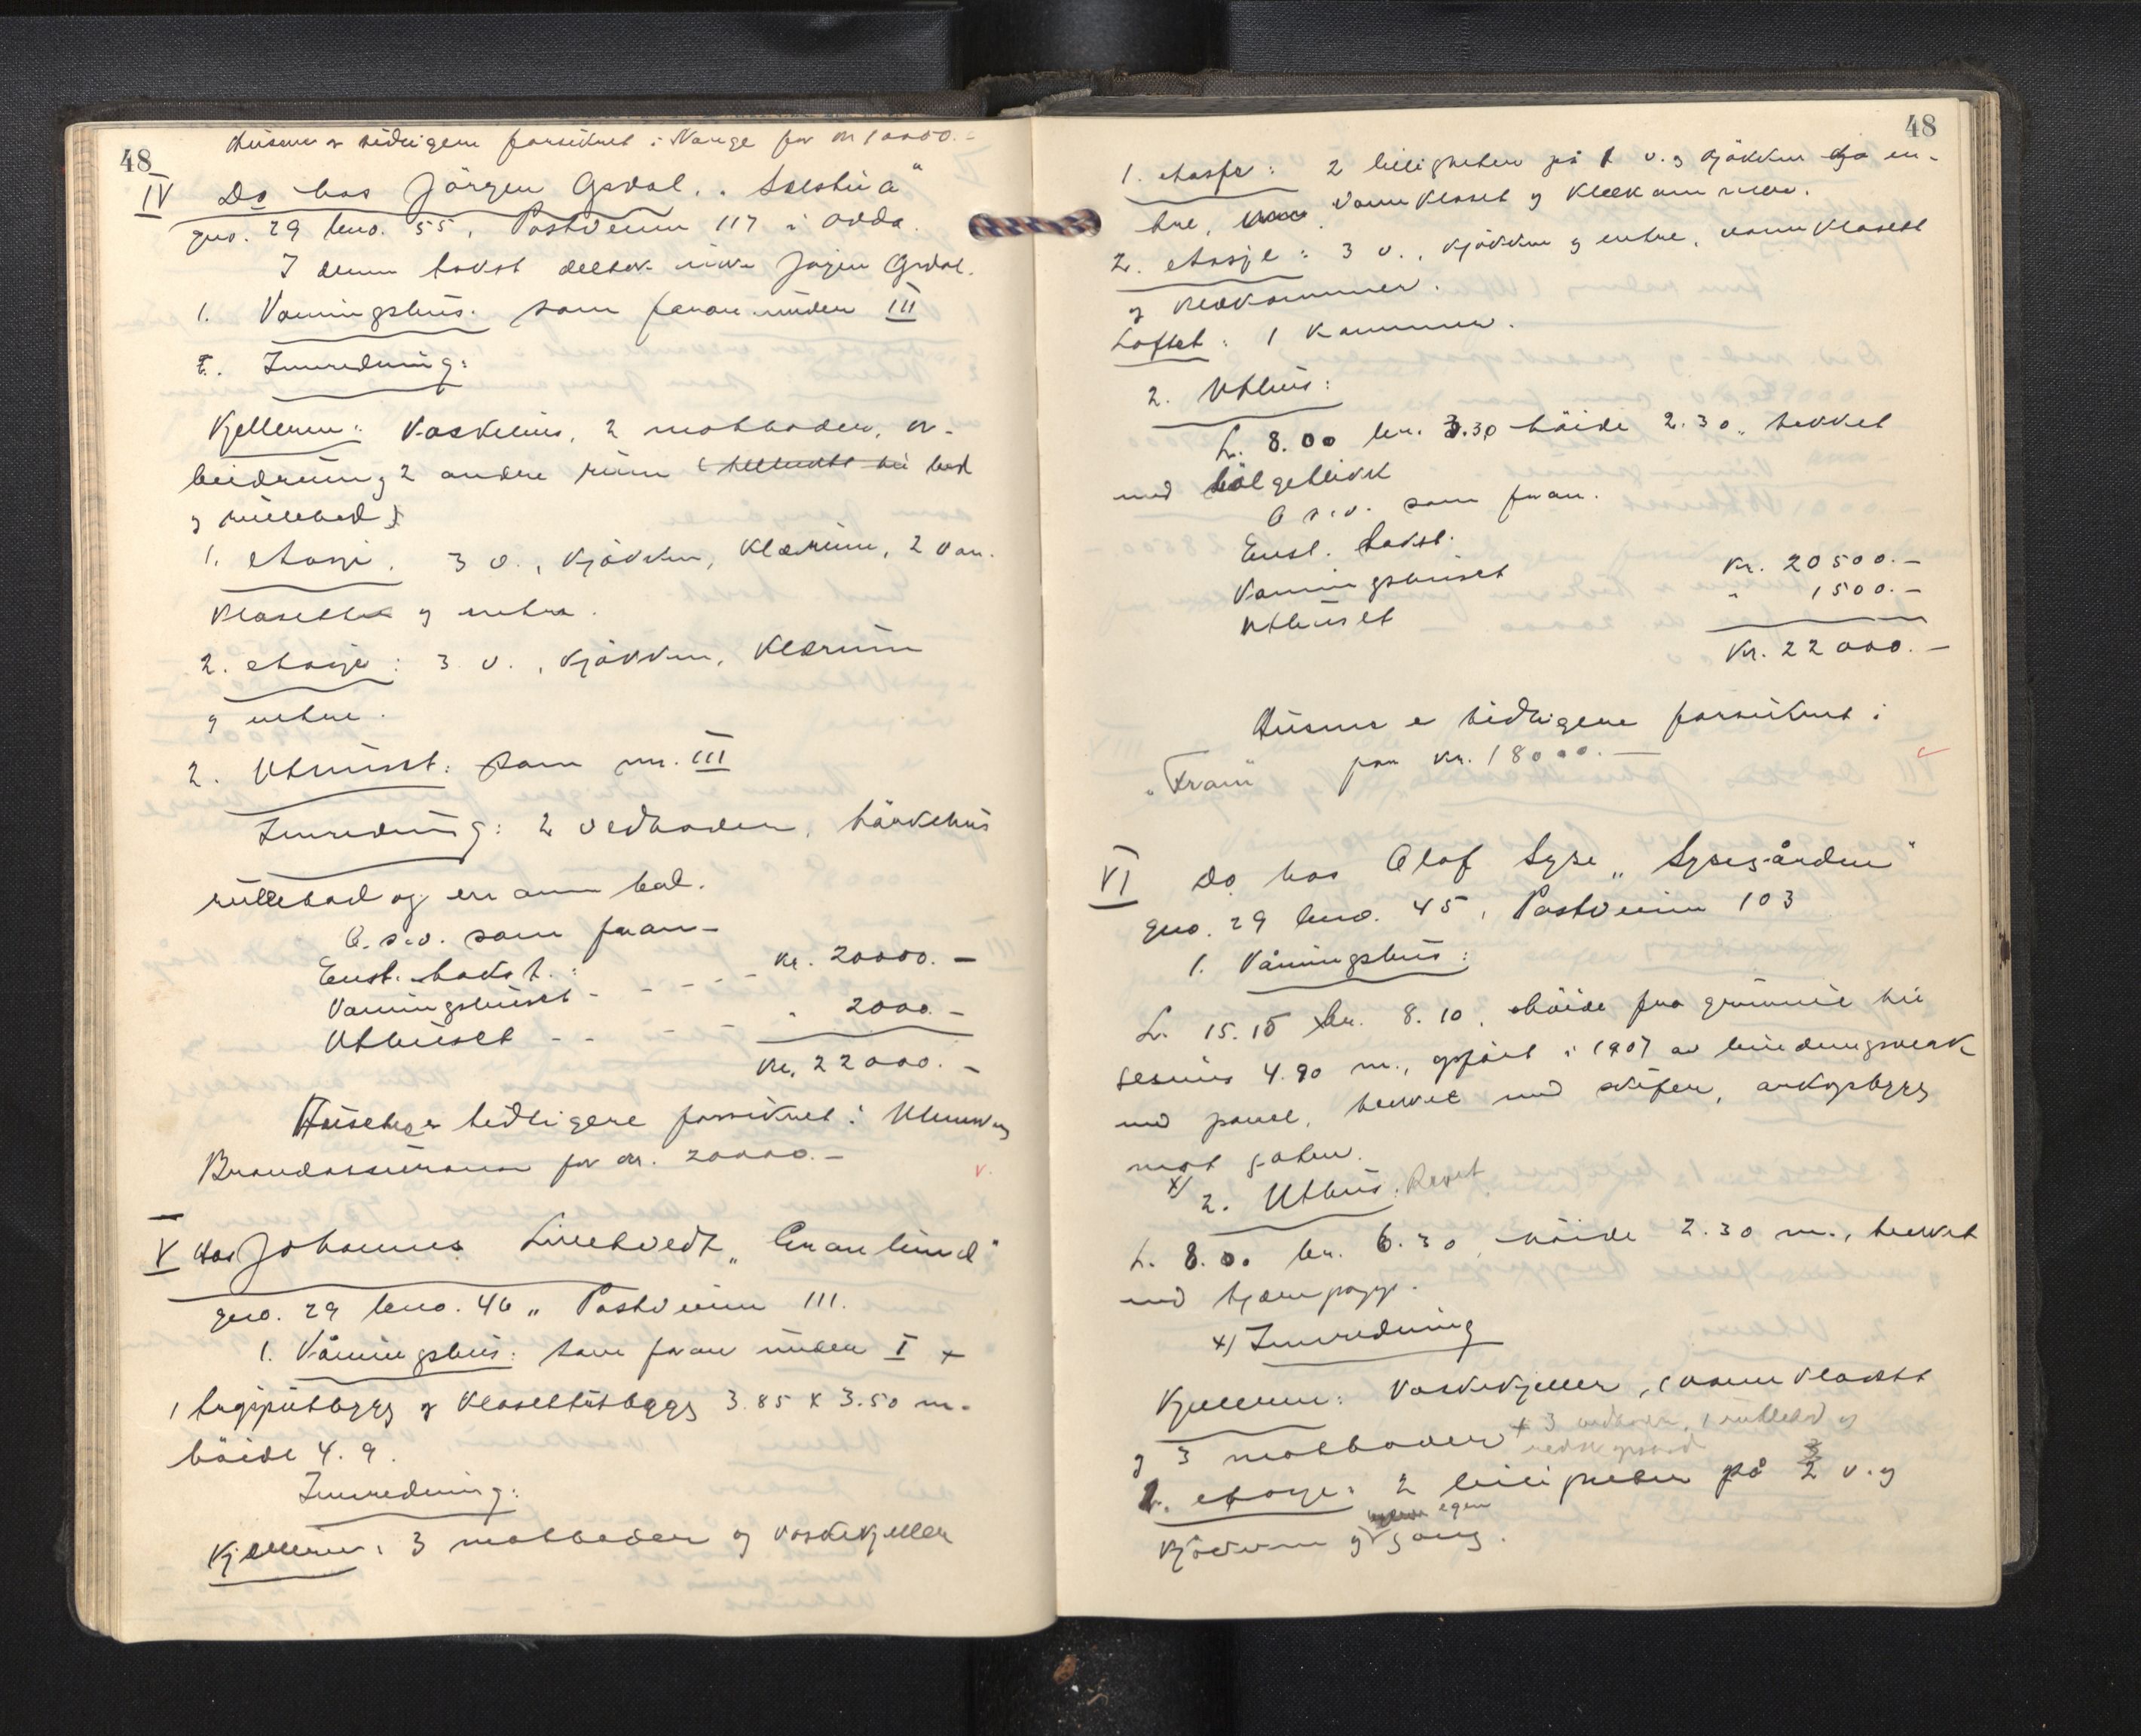 48
Husene er tidligere forsikret i Norge for kr 10000.-
IV Do hos Jörgen Gsdal. "Solstua"
gno. 29 bno. 55, Postveien 117 i Odda.
I denne takst deltok ikke Jörgen Gsdal.
1. Vaaningshus: som foran under III
Innredning:
Kjelleren: Vaskehus, 2 matboder, ar-
beidsrum og 2 andre rum bad
og rullebod
1. etasje. 3 v., kjökken, klærum, 2 van.
klosetter og entre.
2. etasje: 3 v., kjökken, klærum
og entre.
2. Uthuset: som nr. III
Innredning: 2 vedboder, tårkehus
rullebod og en ann bod.
O.s.v. som foran-
Enst. takst. :
Vaaningshuset - - - - kr. 20000.-
Uthuset - - - - " 2000.-
kr. 22000.-
Huset er tidligere forsikret i
Brandassuranse for kr. 20000.-
v.
V hos Johannes Lilletvedt "Granlund"
gno. 29 bno. 46 " Postveien 111.
1. Våningshus: som foran under I +
1 trapputbygg og klosettutbygg 3.85 x 3.50 m.
höide 4.9.
Innredning:
Kjelleren: 3 matboder og vaskekjeller
48
1. etasje: 2 leiligheter på 1 v. og kjökken en-
tre, vannkloset og klækammer.
2. etasje: 3 v., kjökken og entre, vannklosett
og klækammer.
Loftet: 1 kammer.
2. Uthus:
L. 8.00 br. 3.30 höide 2.30, tekket
med bölgeblikk
O.s.v. som foran.
Enst. takst.
Vaaningshuset kr. 20500.-
Uthuset " 1500.-
kr. 22000.-
Husene er tidligere forsikret i
"Fram" for kr. 18000.-
VI Do hos Olaf Syse "Sysegården"
gno. 29 bno. 45, Postveien 103
1. Våningshus:
L. 15.15 br. 8.10, höide fra grunnmur til
gesims 4.90 m., opfört i 1907 av bindingsverk
med panel, tekket med skifer, arkopbygg
mot gaten.
x) 2. Uthus: Revet
L. 8.00 br. 6.30, höide 2.30 m., tekket
med tjærepapp.
x) Innredning
Kjelleren: Vaskekjeller, 1 vannklosett
og 3 matboder + 3 vedboder, 1 rullebod og
redskapsbod
1. etasje: 2 leiligheter på 2 v. og
egen
kjökken og gang.